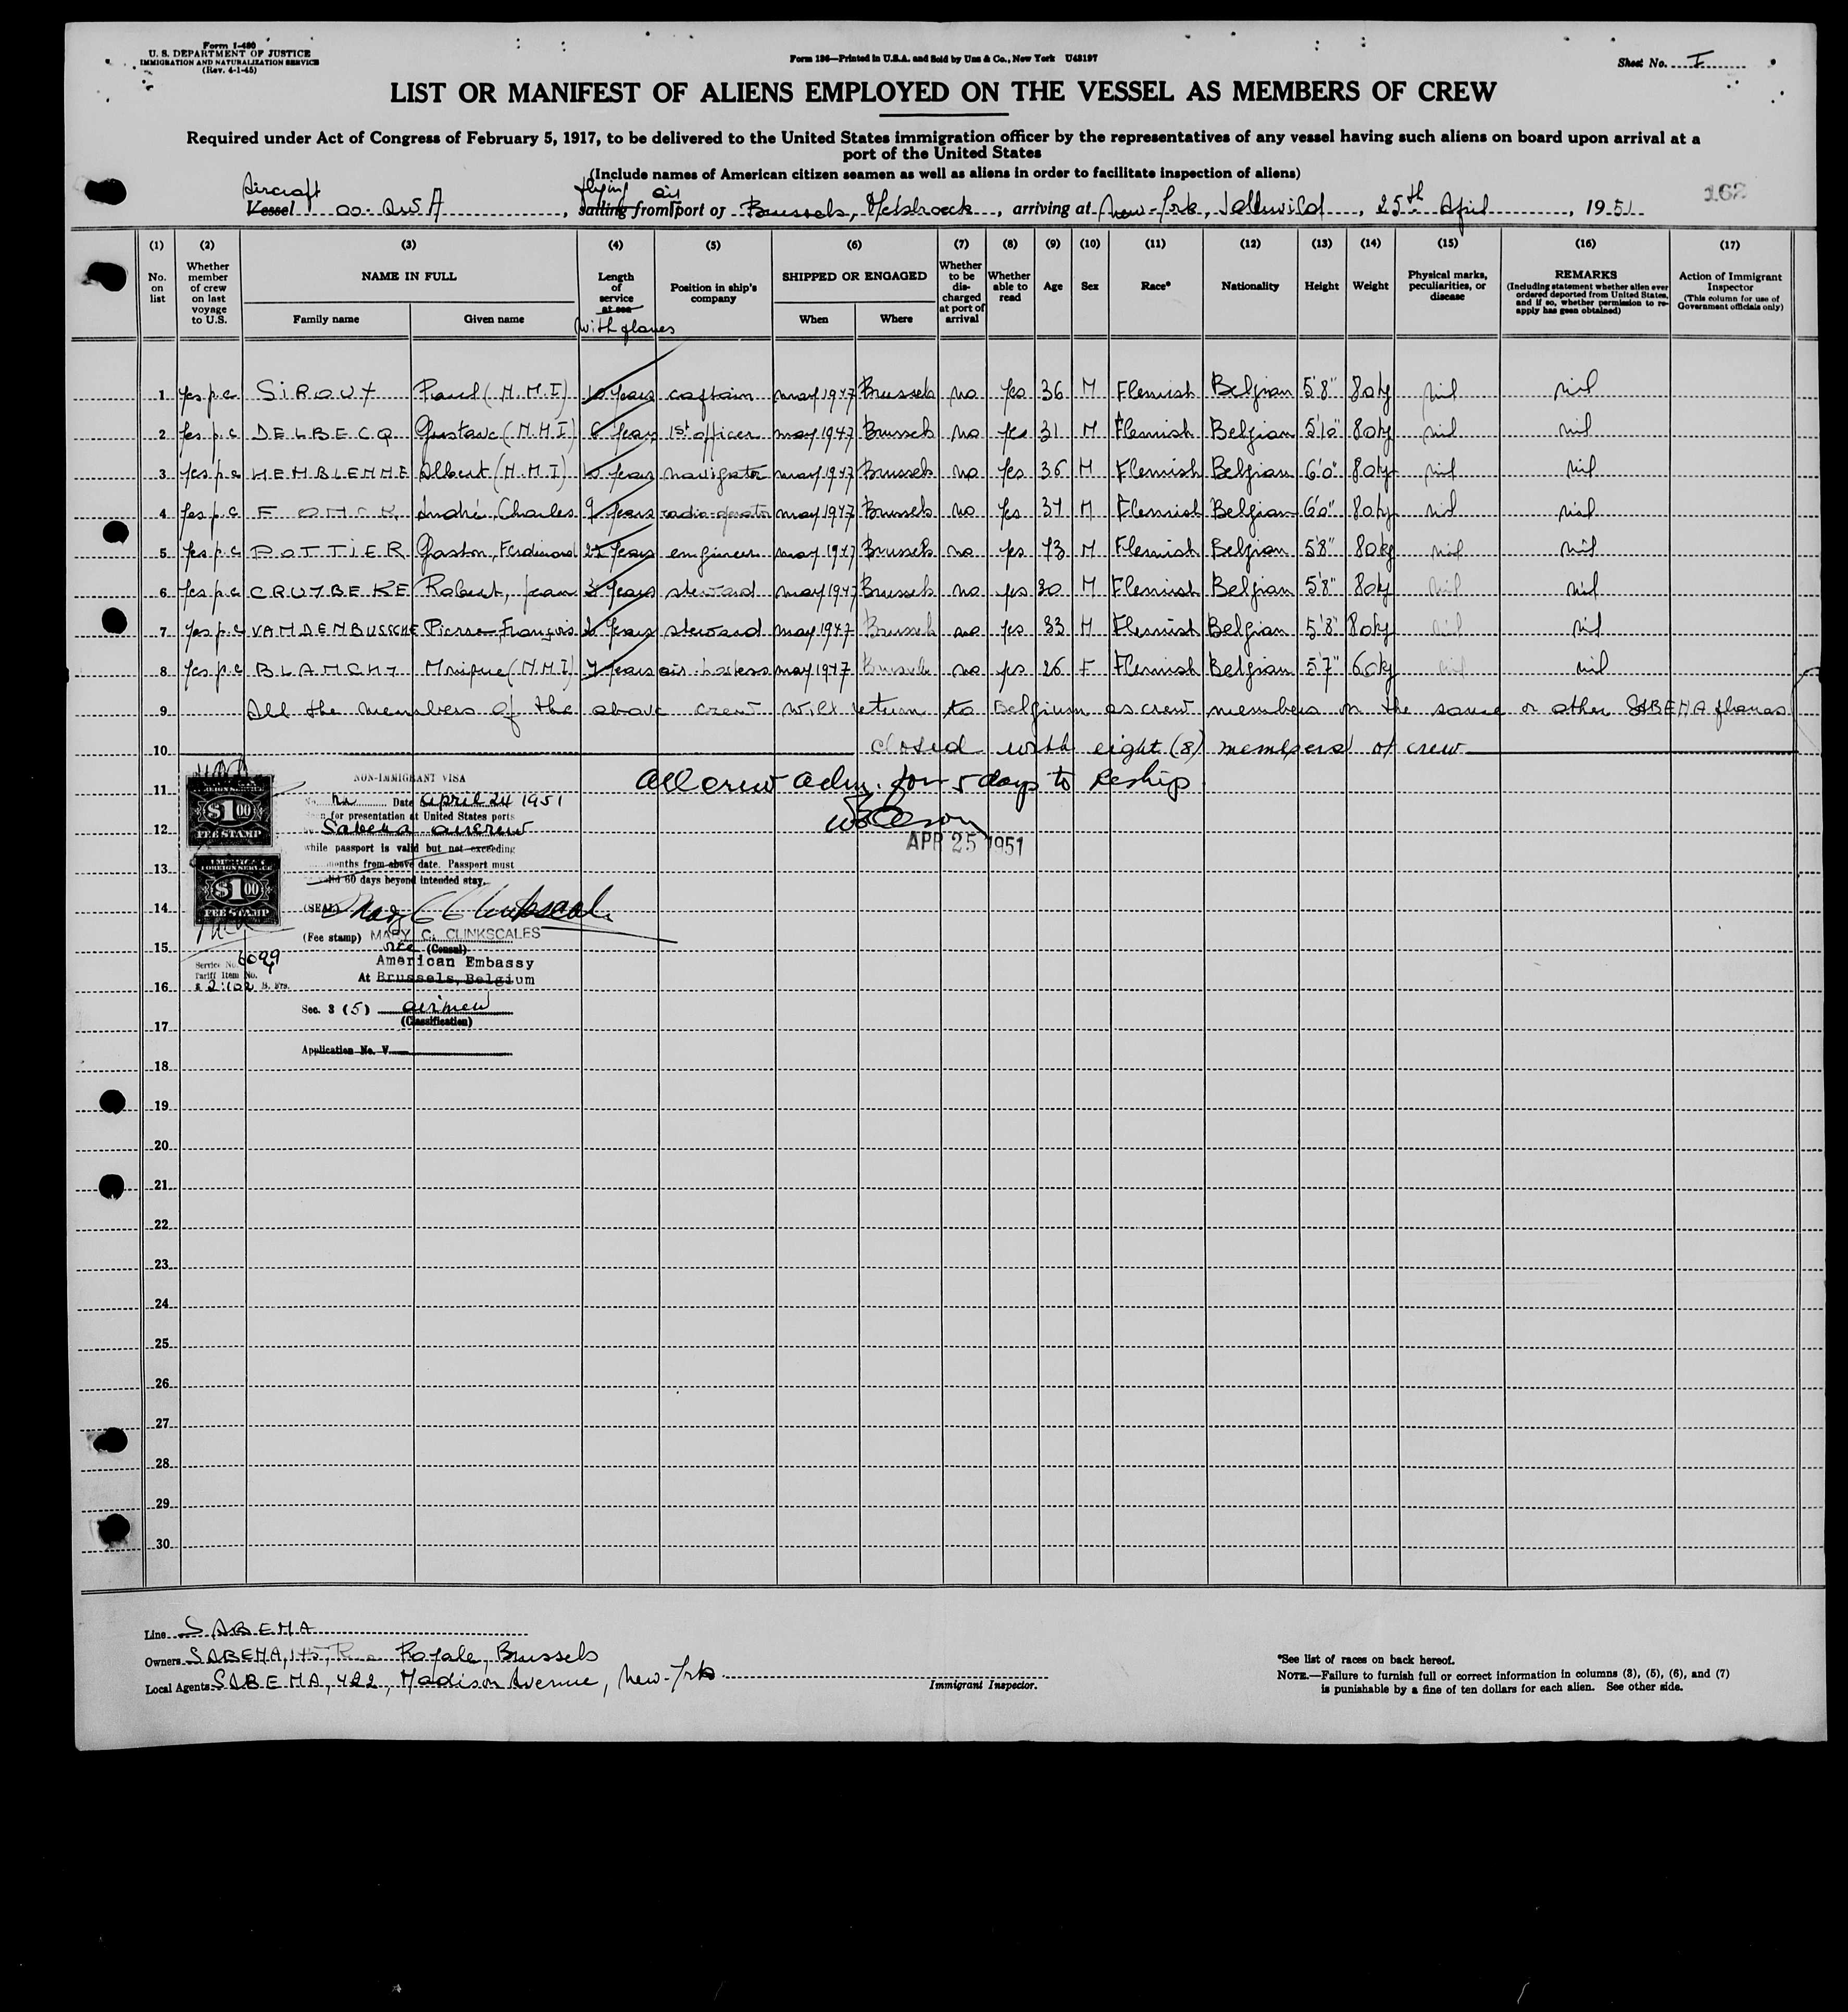 Form I-480
U. S. DEPARTMENT OF JUSTICE
IMMIGRATION AND NATURALIZATION SERVICE
(Rev. 4-1-45)
Form 136—Printed in U.S.A. and Sold by Unz & Co., New York U43197
Sheet No. I
LIST OR MANIFEST OF ALIENS EMPLOYED ON THE VESSEL AS MEMBERS OF CREW
Required under Act of Congress of February 5, 1917, to be delivered to the United States immigration officer by the representatives of any vessel having such aliens on board upon arrival at a
port of the United States
(Include names of American citizen seamen as well as aliens in order to facilitate inspection of aliens)
Aircraft flying air
Vessel OO- , sailing from port of Brussels, Melsbroeck, arriving at New-York, Idlewild, 25th April, 1951
162
(1) (2) (3) (4) (5) (6) (7) (8) (9) (10) (11) (12) (13) (14) (15) (16) (17)
No. on list Whether member of crew on last voyage to U.S. NAME IN FULL Family name Given name Length of service at sea with planes Position in ship's company SHIPPED OR ENGAGED When Where Whether to be discharged at port of arrival Whether able to read Age Sex Race* Nationality Height Weight Physical marks, peculiarities, or disease REMARKS (Including statement whether alien ever ordered deported from United States, and if so, whether permission to re-apply has been obtained) Action of Immigrant Inspector (This column for use of Government officials only)
1 Yes p.c SIROUX Paul (N.M.I) 10 Years captain may 1947 Brussels no Yes 36 M Flemish Belgian 5'8" 80kg nil nil
2 Yes p.c DELBECQ Gustave (N.M.I) 6 Years 1st officer may 1947 Brussels no Yes 31 M Flemish Belgian 5'10" 80kg nil nil
3 Yes p.c HEMBLENNE Albert (N.M.I) 10 Years navigator may 1947 Brussels no Yes 36 M Flemish Belgian 6'0" 80kg nil nil
4 Yes p.c FONCK André, Charles 9 Years radio-operator may 1947 Brussels no Yes 37 M Flemish Belgian 6'0" 80kg nil nil
5 Yes p.c POTTIER Gaston, Ferdinand Years engineer may 1947 Brussels no yes 43 M Flemish Belgian 5'8" 80kg nil nil
6 Yes p.c CRUYBEKE Robert, Jean 3 Years steward may 1947 Brussels no yes 30 M Flemish Belgian 5'8" 80kg nil nil
7 Yes p.c VANDENBUSSCHE Pierre-François Years steward may 1947 Brussels no yes 33 M Flemish Belgian 5'8" 80kg nil nil
8 Yes p.c BLANCHY Monique (N.M.I) Years air-hostess may 1947 Brussels no yes 26 F Flemish Belgian 5'7" 60kg nil nil
9 All the members of the above crew will return to Belgium as crew members on the same or other SABENA planes
10 closed with eight (8) members of crew
11 All crew adm. for 5 days to Reship
12
APR 25 1951
13
14
15
16
17
18
19
20
21
22
23
24
25
26
27
28
29
30
FOREIGN SERVICE
$1 00
FEE STAMP
AMERICAN
FOREIGN SERVICE
$1 00
FEE STAMP
NON-IMMIGRANT VISA
Date April 24 1951
for presentation at United States ports
Sabena aircrew
while passport is valid but not exceeding
months from above date. Passport must
valid 60 days beyond intended stay.
(SEAL) Mary C Clinkscales
(Fee stamp) MARY C. CLINKSCALES
vice (Consul)
American Embassy
At Brussels, Belgium
Service No. 6099
Tariff Item No.
B. Frs.
Sec. 3 (5) airmen
(Classification)
Application No. V
Line SABENA
Owners SABENA, 145, Rue Royale, Brussels
Local Agents SABENA, 422, Madison Avenue, New-York
Immigrant Inspector.
*See list of races on back hereof.
NOTE.—Failure to furnish full or correct information in columns (3), (5), (6), and (7)
is punishable by a fine of ten dollars for each alien. See other side.